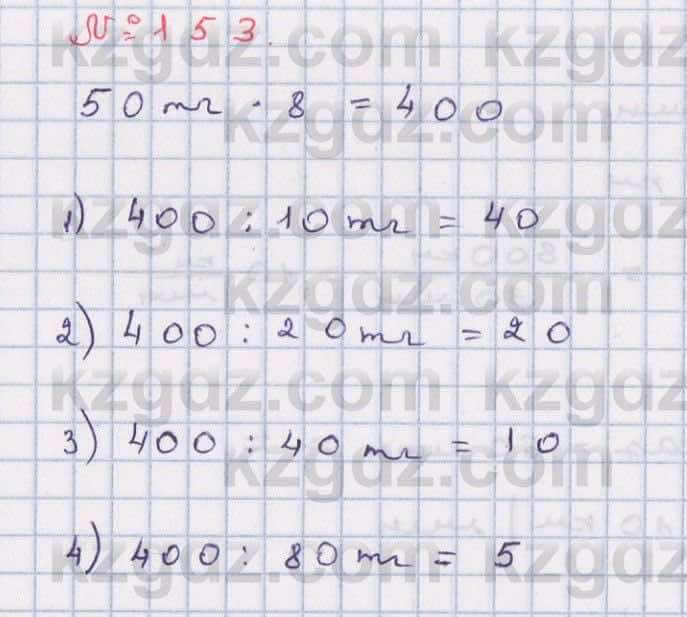 №153.
50 тг · 8 = 400
1) 400 : 10 тг = 40
2) 400 : 20 тг = 20
3) 400 : 40 тг = 10
4) 400 : 80 тг = 5
kzgdz.com kzgdz
kzgdz.com
kzgdz.com kzgdz
kzgdz.com
kzgdz.com kzgdz
kzgdz.com
kzgdz.com kzgdz